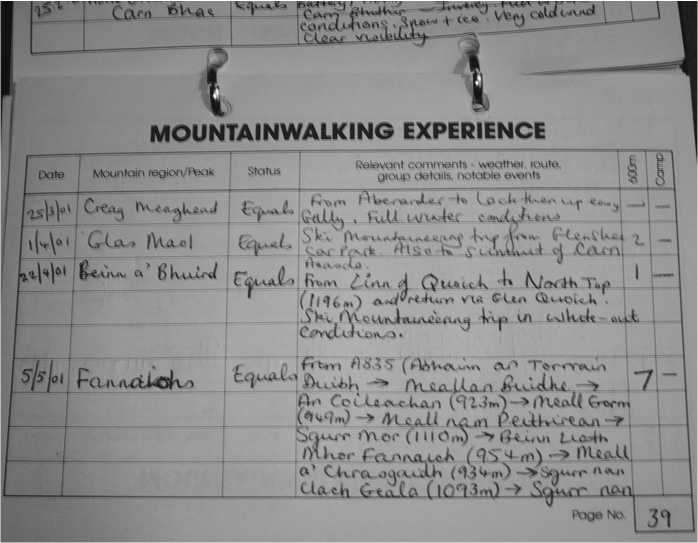 25/2
Carn Bhac
Equals
conditions. Snow + ice. Very cold wind
Clear visibility
MOUNTAINWALKING EXPERIENCE
Date
Mountain region/Peak
Status
Relevant comments - weather, route,
group details, notable events
600m
Camp
25/3/01 Creag Meaghead Equals From Aberarder to Loch then up easy 1 —
Gully. Full winter conditions
1/4/01 Glas Maol Equals Ski Mountaineering trip from Glenshee 2 —
Car Park. Also to summit of Carn
22/4/01 Beinn a' Bhuird Equals From Linn of Quoich to North Top 1 —
(1196m) and return via Glen Quoich.
Ski Mountaineering trip in white-out
conditions.
5/5/01 Fannaichs Equals From A835 (Abhainn an Torrain 7 —
Duibh → Meallan Buidhe →
An Coileachan (923m) → Meall Gorm
(949m) → Meall nam Peithirean →
Sgurr Mor (1110m) → Beinn Liath
Mhor Fannaich (954m) → Meall
a' Chrasgaidh (934m) → Sgurr nan
Clach Geala (1093m) → Sgurr nan
Page No. 39